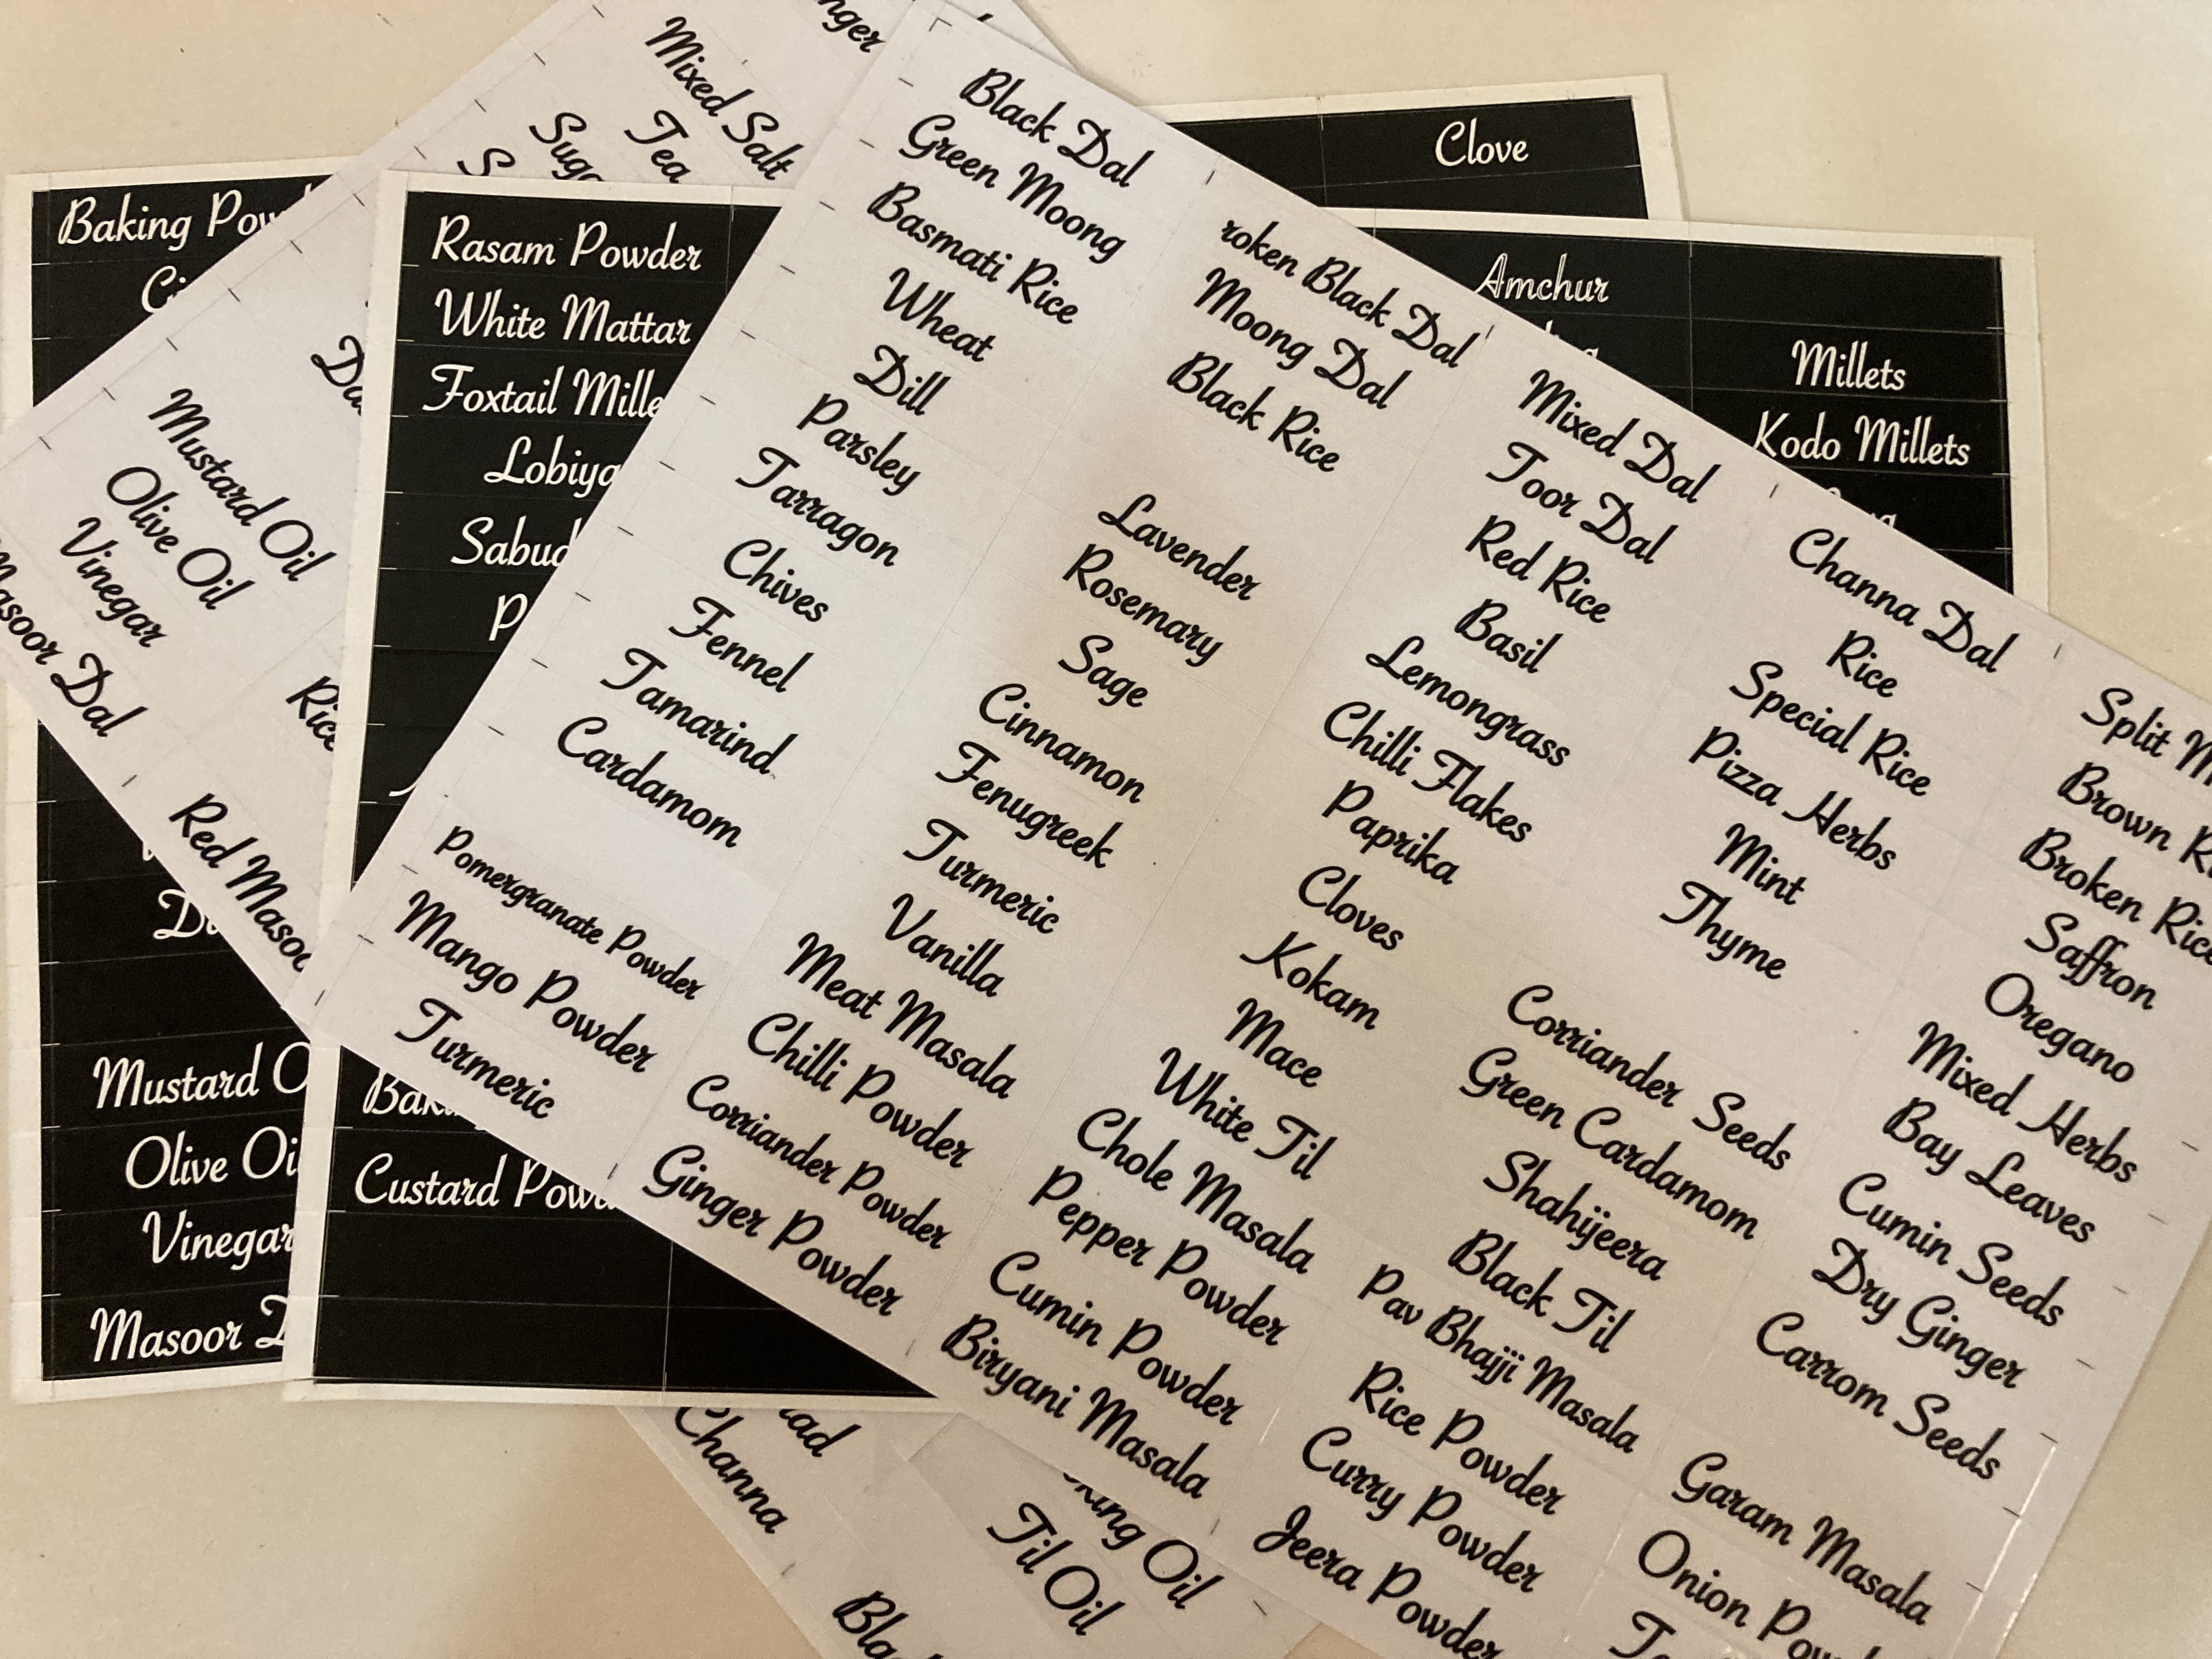 Mixed Salt
Tea
Clove
Baking
Rasam Powder
White Mattar
Foxtail
Lobiya
Mustard Oil
Olive Oil
Vinegar
Masoor Dal
Rice
Red
Black Dal
Green Moong
Basmati Rice
Wheat
Dill
Parsley
Tarragon
Chives
Fennel
Tamarind
Cardamom
Pomergranate Powder
Mango Powder
Turmeric
roken Black Dal
Moong Dal
Black Rice
Lavender
Rosemary
Sage
Cinnamon
Fenugreek
Turmeric
Vanilla
Meat Masala
Chilli Powder
Corriander Powder
Ginger Powder
Mixed Dal
Toor Dal
Red Rice
Basil
Lemongrass
Chilli Flakes
Paprika
Cloves
Kokam
Mace
White Til
Chole Masala
Pepper Powder
Cumin Powder
Biryani Masala
Channa Dal
Rice
Special Rice
Pizza Herbs
Mint
Thyme
Corriander Seeds
Green Cardamom
Shahijeera
Black Til
Pav Bhajji Masala
Rice Powder
Curry Powder
Jeera Powder
Split
Brown
Broken Rice
Saffron
Oregano
Mixed Herbs
Bay Leaves
Cumin Seeds
Dry Ginger
Carrom Seeds
Garam Masala
Onion
Amchur
Millets
Kodo Millets
Mustard
Olive
Vinegar
Masoor
Custard
Channa
Oil
Til Oil